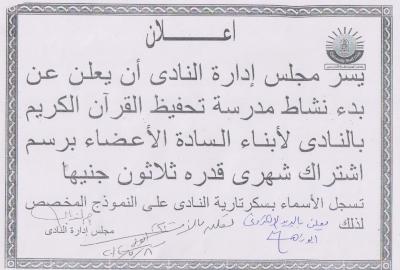 اعلان
يسر مجلس إدارة النادى أن يعلن عن
بدء نشاط مدرسة تحفيظ القرآن الكريم
بالنادى لأبناء السادة الأعضاء برسم
اشتراك شهرى قدره ثلاثون جنيها
تسجل الأسماء بسكرتارية النادى على النموذج المخصص
لذلك
مجلس إدارة النادى